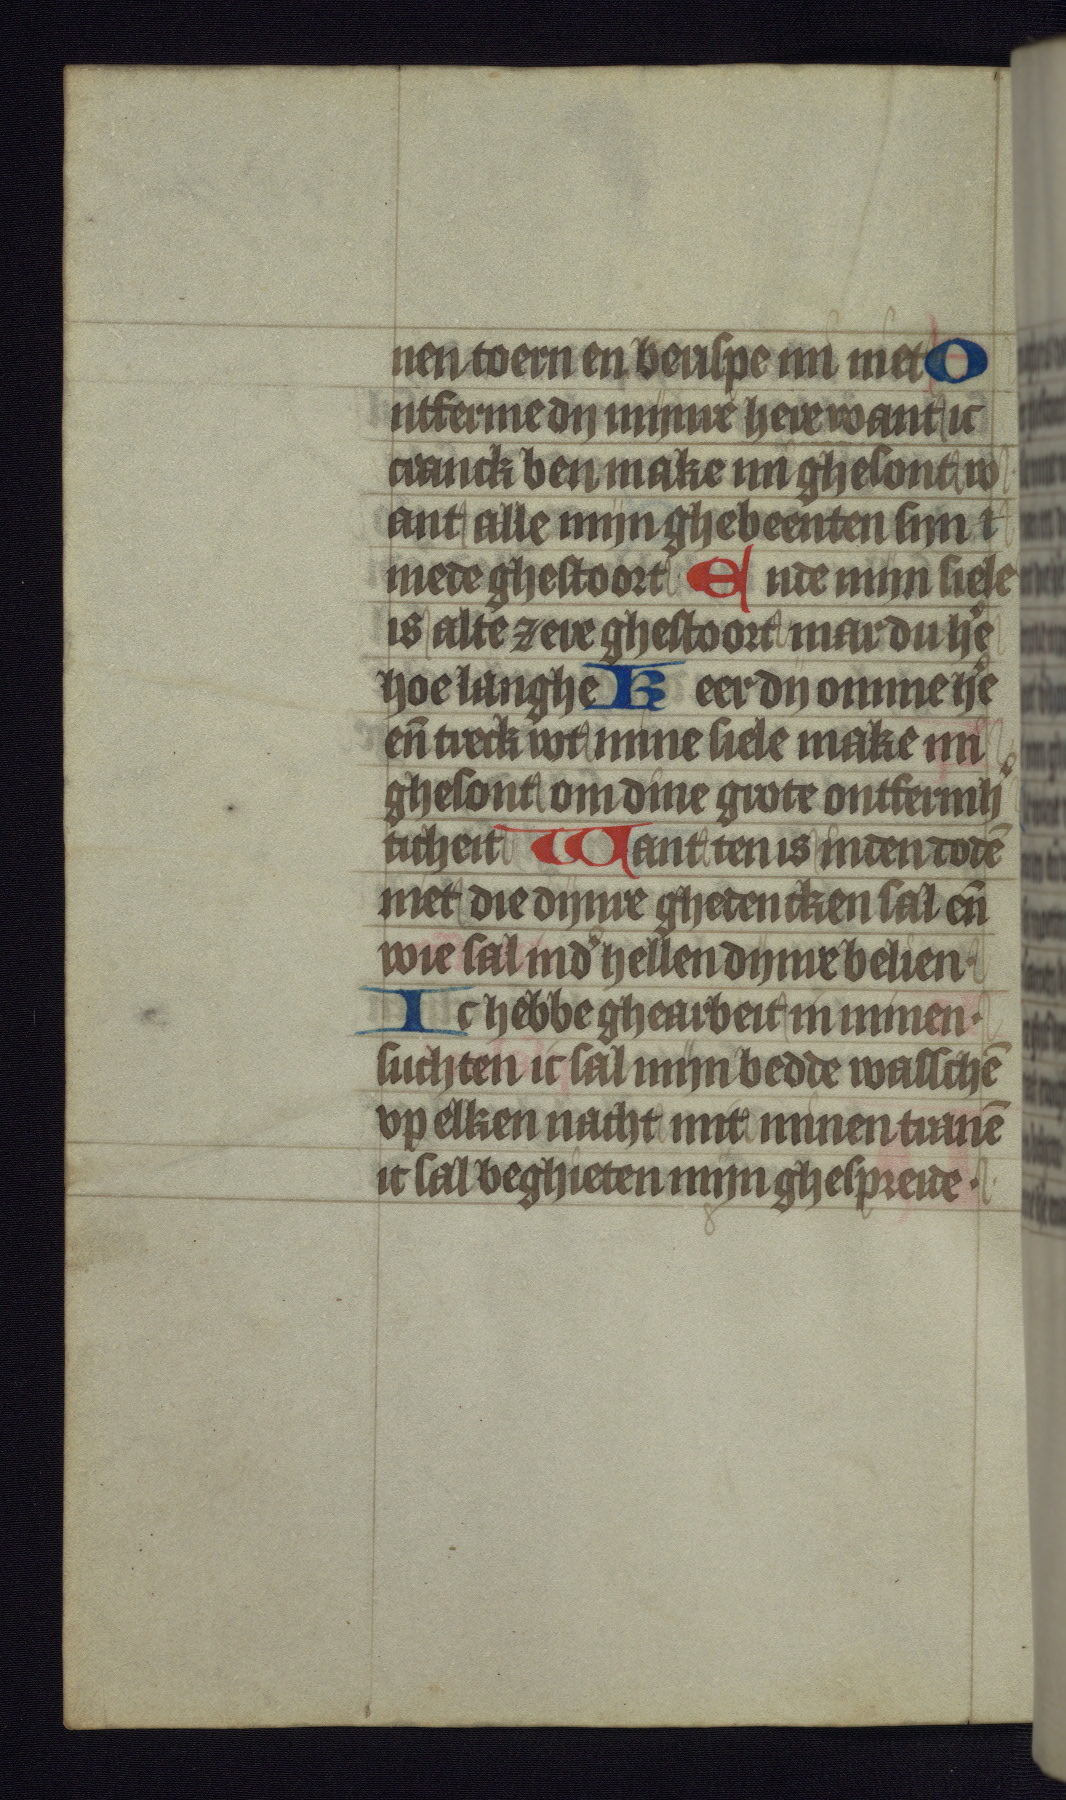 nen toern en berispe mi niet O
ntferme dy mijnre here want ic
cranck ben make mi ghesont w
ant alle mijn ghebeenten sijn t
mede ghestoort E nde mijn siele
is alte zere ghestoort mar du hе̄
hoe langhe K eer dy omme hе̄
en̄ treck wt mine siele make mi
ghesont om dine grote ontfermh
ticheit Want ten is inden dodē
niet die dijnre ghedencken sal en̄
wie sal ind' hellen dijnre belien·
Ic hebbe ghearbeit in minen·
suchten ic sal mijn bedde wasschē
vp elken nacht mit minen tranē
ic sal beghieten mijn ghespreide·